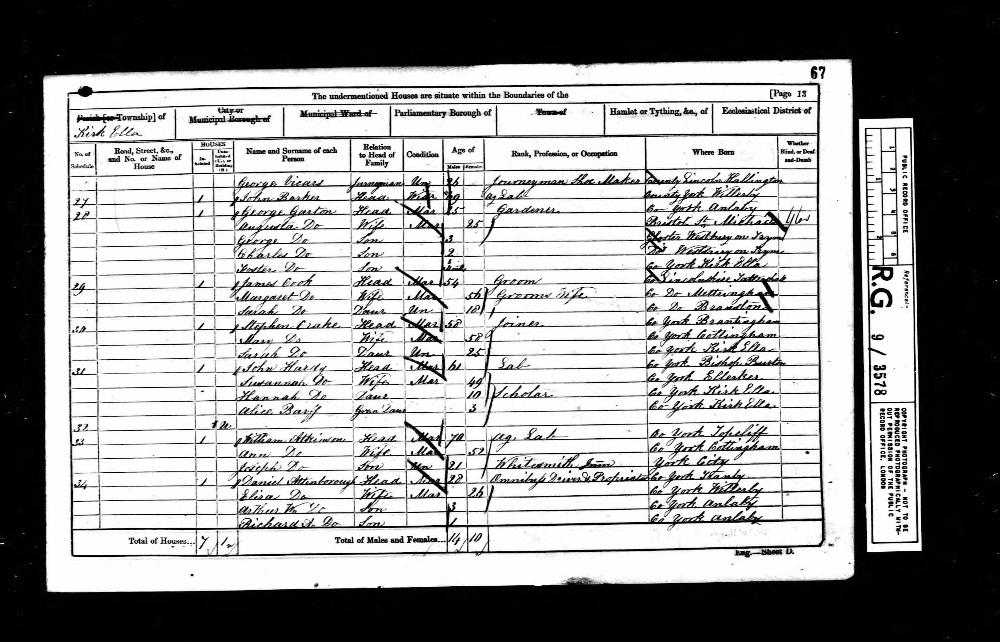 67
The undermentioned Houses are situate within the Boundaries of the [Page 13
Parish [or Township] of City or Municipal Borough of Municipal Ward of Parliamentary Borough of Town of Hamlet or Tything, &c., of Ecclesiastical District of
Kirk Ella
No. of Schedule Road, Street, &c., and No. or Name of House HOUSES Inhabited Uninhabited (U.), or Building (B.) Name and Surname of each Person Relation to Head of Family Condition Age of Males Females Rank, Profession, or Occupation Where Born Whether Blind, or Deaf-and-Dumb
George Vicars Journeyman Un 26 Journeyman Shoe Maker County Lincoln Hallington
27 1 John Barker Head 49 Ag Lab County York Willerby
28 1 George Garton Head Mar 25 Gardener Co York Anlaby
Augusta Do Wife Mar 25 Bristol St
George Do Son 3 Westbury on Trym
Charles Do Son 2 Do Westbury on Trym
Foster Do Son Co York Kirk Ella
29 1 James Cook Head Mar 54 Groom Co Lincolnshire
Margaret Do Wife Mar 56 Grooms Wife Co Do Metheringham
Sarah Do Daur Un 18 Co Do Branston
30 1 Stephen Crake Head Mar 58 Joiner Co York Brantingham
Mary Do Wife Mar 58 Co York Cottingham
Sarah Do Daur Un 25 Co York Kirk Ella
31 1 John Hardy Head Mar 61 Lab Co York Bishop Burton
Suwannah Do Wife Mar 49 Co York Ellerker
Hannah Do Daur 10 Scholar Co York Kirk Ella
Alice Daur 3 Co York Kirk Ella
32 1 U
33 1 William Atkinson Head Mar 70 Ag. Lab Co York Topcliff
Ann Do Wife Mar 52 Co York Cottingham
Joseph Do Son Un 21 Whitesmith York City
34 1 Daniel Attenborough Head Mar 28 Omnibus Driver & Proprietor Co York
Eliza Do Wife Mar 26 Co York Willerby
Arthur W Do Son 3 Co York Anlaby
Richard A Do Son 1 Co York Anlaby
Total of Houses... 7 1 Total of Males and Females... 14 10
Eng.—Sheet D.
PUBLIC RECORD OFFICE
Reference:-
R.G. 9 / 3578
COPYRIGHT PHOTOGRAPH - NOT TO BE REPRODUCED PHOTOGRAPHICALLY WITHOUT PERMISSION OF THE PUBLIC RECORD OFFICE, LONDON